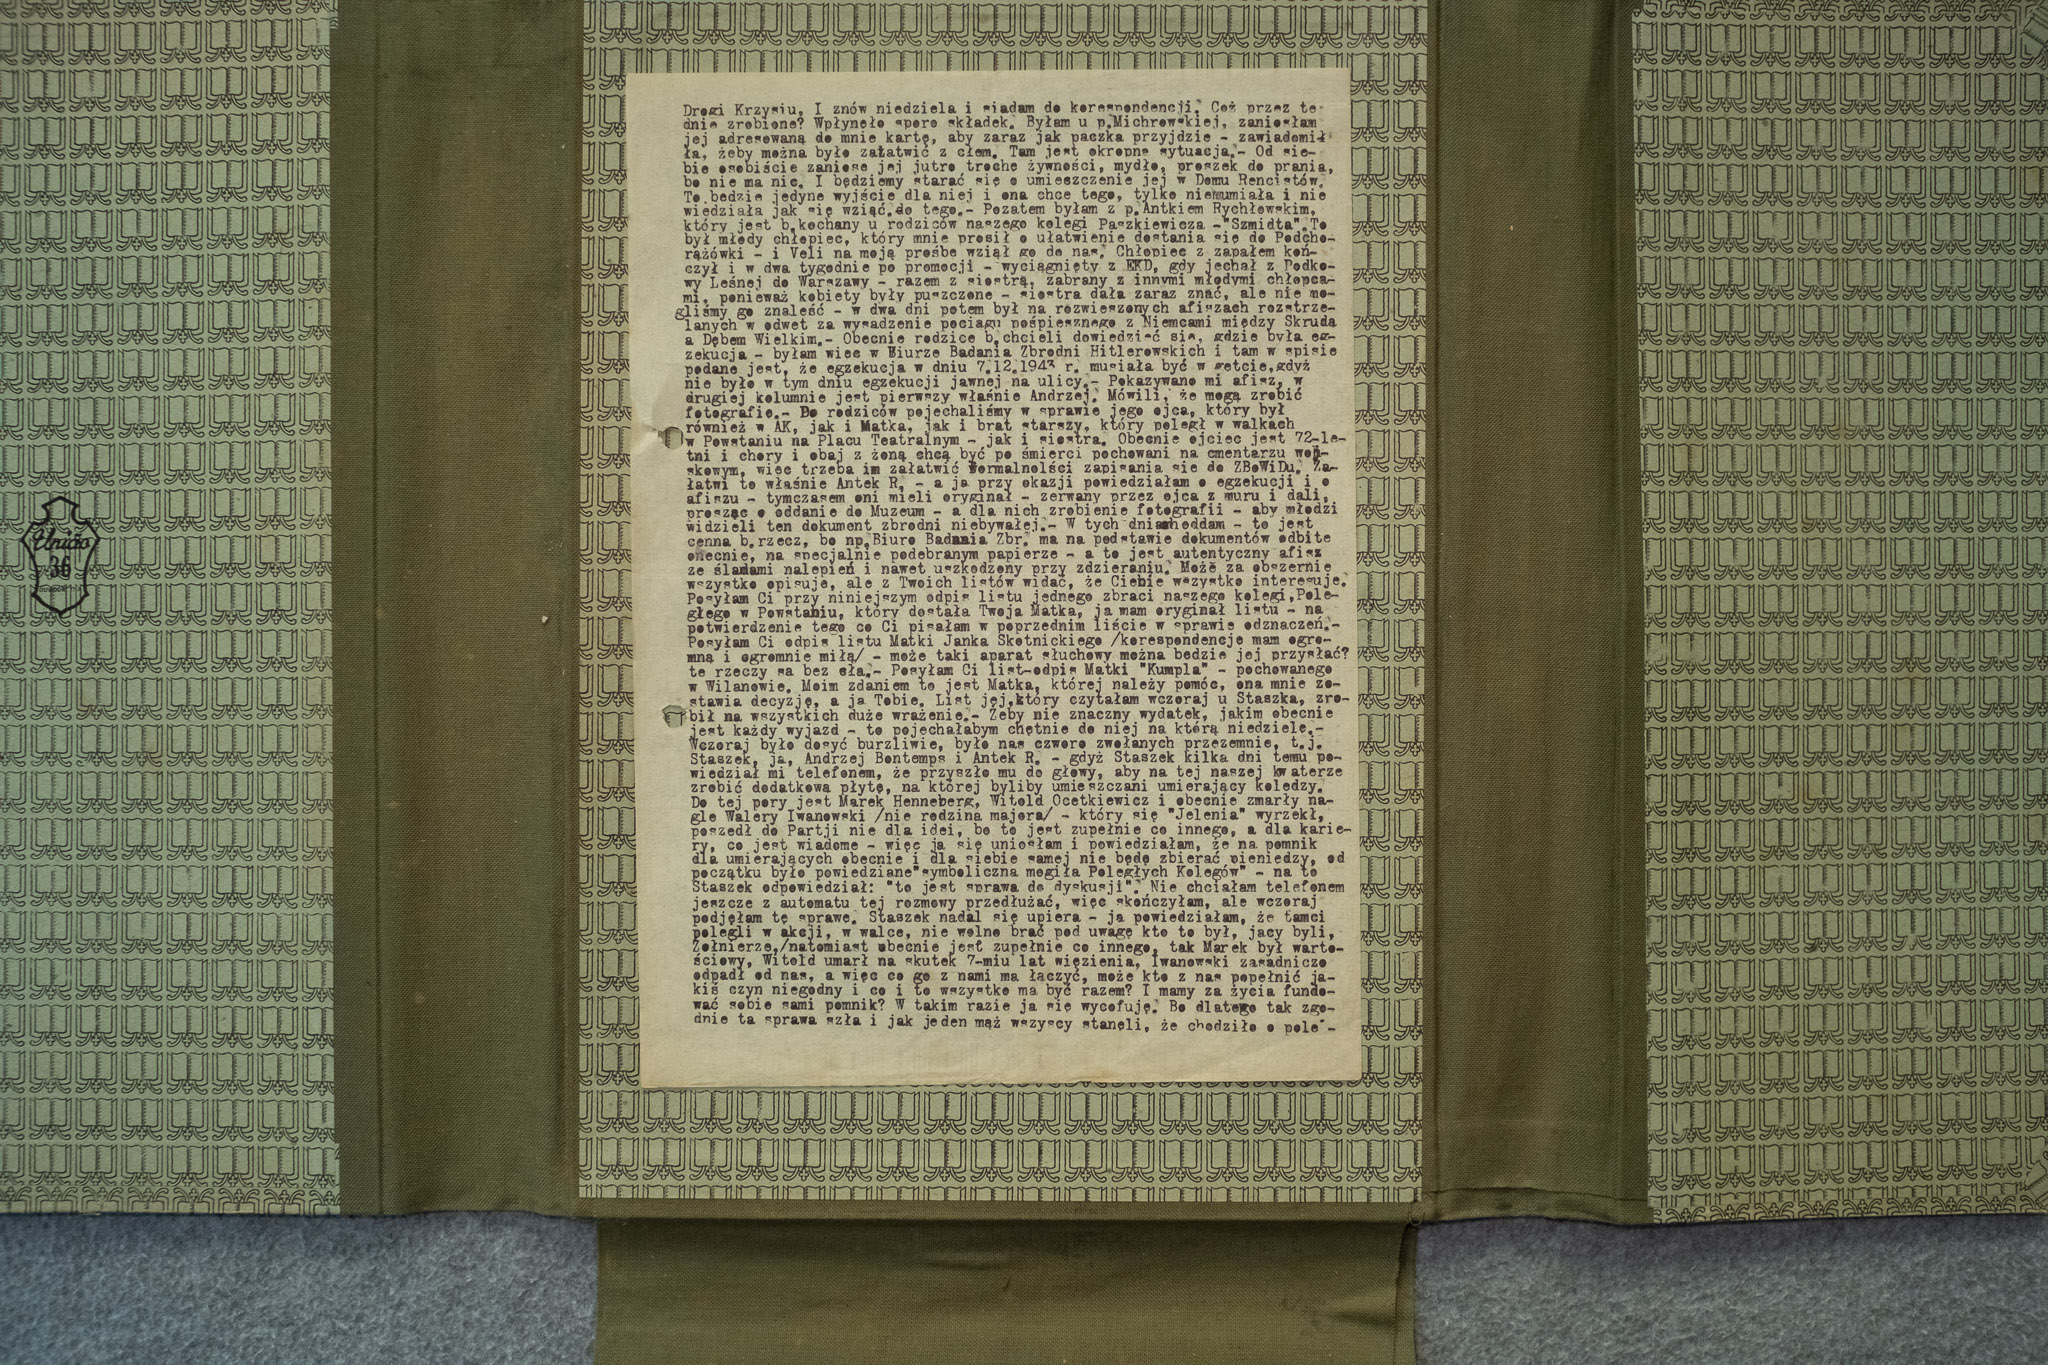 União
36
Drogi Krzysiu, I znów niedziela i siadam do korespondencji. Coż przez te
dnie zrobione? Wpłynęło sporo składek. Byłam u p.Michrowskiej, zaniosłam
jej adresowaną do mnie kartę, aby zaraz jak paczka przyjdzie - zawiadomił
ła, żeby można było załatwić z cłem. Tam jest okropna sytuacja.- Od sie-
bie osobiście zaniosę jej jutro trochę żywności, mydło, proszek do prania,
bo nie ma nic. I będziemy starać się o umieszczenie jej w Domu Rencistów.
To będzie jedyne wyjście dla niej i ona chce tego, tylko nieumiała i nie
wiedziała jak się wziąć do tego.- Pozatem byłam z p.Antkiem Rychłowskim,
który jest b.kochany u rodziców naszego kolegi Paszkiewicza -"Szmidta".To
był młody chłopiec, który mnie prosił o ułatwienie dostania się do Podcho-
rążówki - i Veli na moją prośbę wziął go do nas. Chłopiec z zapałem koń-
czył i w dwa tygodnie po promocji - wyciągnięty z EKD, gdy jechał z Podko-
wy Leśnej do Warszawy - razem z siostrą, zabrany z innymi młodymi chłopca-
mi, ponieważ kobiety były puszczone - siostra dała zaraz znać, ale nie mo-
gliśmy go znaleść - w dwa dni potem był na rozwieszonych afiszach rozstrze-
lanych w odwet za wysadzenie pociągu pośpiesznego z Niemcami między Skrudą
a Dębem Wielkim.- Obecnie rodzice b.chcieli dowiedzieć się, gdzie była eg-
zekucja - byłam więc w Biurze Badania Zbrodni Hitlerowskich i tam w spisie
podane jest, że egzekucja w dniu 7.12.1943 r. musiała być w getcie,gdyż
nie było w tym dniu egzekucji jawnej na ulicy.- Pokazywano mi afisz, w
drugiej kolumnie jest pierwszy właśnie Andrzej. Mówili, że mogą zrobić
fotografię.- Do rodziców pojechaliśmy w sprawie jego ojca, który był
również w AK, jak i Matka, jak i brat starszy, który poległ w walkach
w Powstaniu na Placu Teatralnym - jak i siostra. Obecnie ojciec jest 72-le-
tni i chory i obaj z żoną chcą być po śmierci pochowani na cmentarzu woj-
skowym, więc trzeba im załatwić formalnolści zapisania się do ZBoWiDu. Za-
łatwi to właśnie Antek R, - a ja przy okazji powiedziałam o egzekucji i o
afiszu - tymczasem oni mieli oryginał - zerwany przez ojca z muru i dali,
prosząc o oddanie do Muzeum - a dla nich zrobienie fotografii - aby młodzi
widzieli ten dokument zbrodni niebywałej.- W tych dniach oddam - to jest
cenna b.rzecz, bo np.Biuro Badania Zbr. ma na podstawie dokumentów odbite
obecnie, na specjalnie podebranym papierze - a to jest autentyczny afisz
ze śladami nalepień i nawet uszkodzony przy zdzieraniu. Może za obszernie
wszystko opisuję, ale z Twoich listów widać, że Ciebie wszystko interesuje.
Posyłam Ci przy niniejszym odpis listu jednego zbraci naszego kolegi,Pole-
głego w Powstaniu, który dostała Twoja Matka, ja mam oryginał listu - na
potwierdzenie tego co Ci pisałam w poprzednim liście w sprawie odznaczeń.-
Posyłam Ci odpis listu Matki Janka Skotnickiego /korespondencję mam ogro-
mną i ogromnie miłą/ - może taki aparat słuchowy można będzie jej przysłać?
te rzeczy są bez cła.- Posyłam Ci list-odpis Matki "Kumpla" - pochowanego
w Wilanowie. Moim zdaniem to jest Matka, której należy pomóc, ona mnie zo-
stawia decyzję, a ja Tobie. List jej,który czytałam wczoraj u Staszka, zro-
bił na wszystkich duże wrażenie.- Żeby nie znaczny wydatek, jakim obecnie
jest każdy wyjazd - to pojechałabym chętnie do niej na którą niedzielę.-
Wczoraj było dosyć burzliwie, było nas czworo zwołanych przezemnie, t.j.
Staszek, ja, Andrzej Bontemps i Antek R. - gdyż Staszek kilka dni temu po-
wiedział mi telefonem, że przyszło mu do głowy, aby na tej naszej kwaterze
zrobić dodatkową płytę, na której byliby umieszczani umierający koledzy.
Do tej pory jest Marek Henneberg, Witold Ocetkiewicz i obecnie zmarły na-
gle Walery Iwanowski /nie rodzina majora/ - który się "Jelenia" wyrzekł,
poszedł do Partji nie dla idei, bo to jest zupełnie co innego, a dla karie-
ry, co jest wiadome - więc ja się uniosłam i powiedziałam, że na pomnik
dla umierających obecnie i dla siebie samej nie będę zbierać pieniędzy, od
początku było powiedziane"symboliczna mogiła Poległych Kolegów" - na to
Staszek odpowiedział: "to jest sprawa do dyskusji". Nie chciałam telefonem
jeszcze z automatu tej rozmowy przedłużać, więc skończyłam, ale wczoraj
podjęłam tę sprawę. Staszek nadal się upiera - ja powiedziałam, że tamci
polegli w akcji, w walce, nie wolno brać pod uwagę kto to był, jacy byli,
Żołnierze,/natomiast obecnie jest zupełnie co innego, tak Marek był warto-
ściowy, Witold umarł na skutek 7-miu lat więzienia, Iwanowski zasadniczo
odpadł od nas, a więc co go z nami ma łączyć, może kto z nas popełnić ja-
kiś czyn niegodny i co i to wszystko ma być razem? I mamy za życia fundo-
wać sobie sami pomnik? W takim razie ja się wycofuję. Bo dlatego tak zgo-
dnie ta sprawa szła i jak jeden mąż wszyscy stanęli, że chodziło o pole-